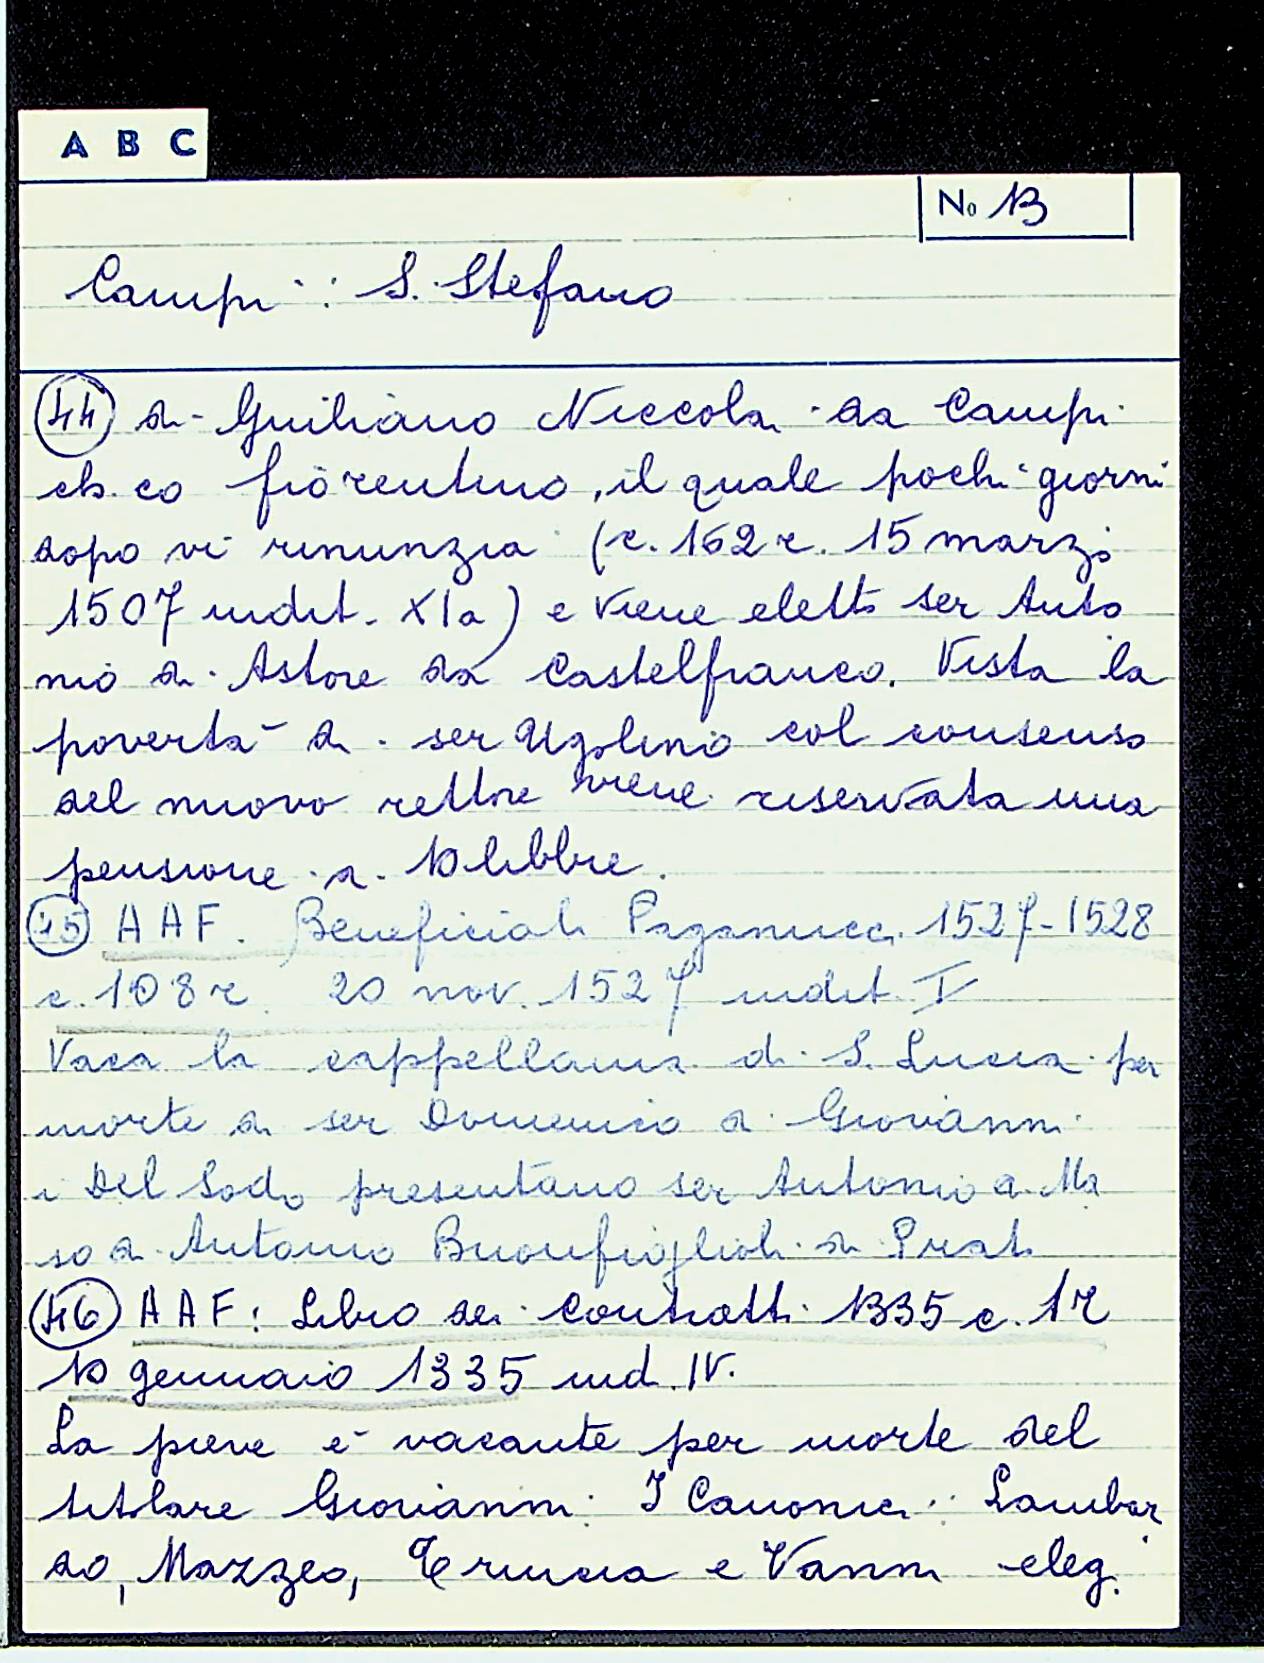 A B C
No 13
Campi: S. Stefano
44 di Guiliano Niccola da Campi
ch.co fiorentino, il quale pochi giorni
dopo vi rinunzia (c. 162 r. 15 marzo
1507 indit. XIa) e viene eletto ser Anto
nio di Astore da Castelfranco. Vista la
povertà di ser Ugolino col consenso
del nuovo rettore viene riservata una
pensione di 10 libbre.
45 AAF. Beneficiali Paganucci 1527-1528
c. 108 r 20 nov. 1527 indit. I
Vaca la cappellania di S. Lucia per
morte di ser Domenico di Giovanni
i Del Sodo presentano ser Antonio di Ma
so di Antonio Buonfiglioli di Prato
46 AAF: Libro dei contratti 1335 c. 1r
10 gennaio 1335 ind. IV.
La pieve è vacante per morte del
titolare Giovanni. I Canonici: Lambar
do, Mazzeo, e Vanni eleg.